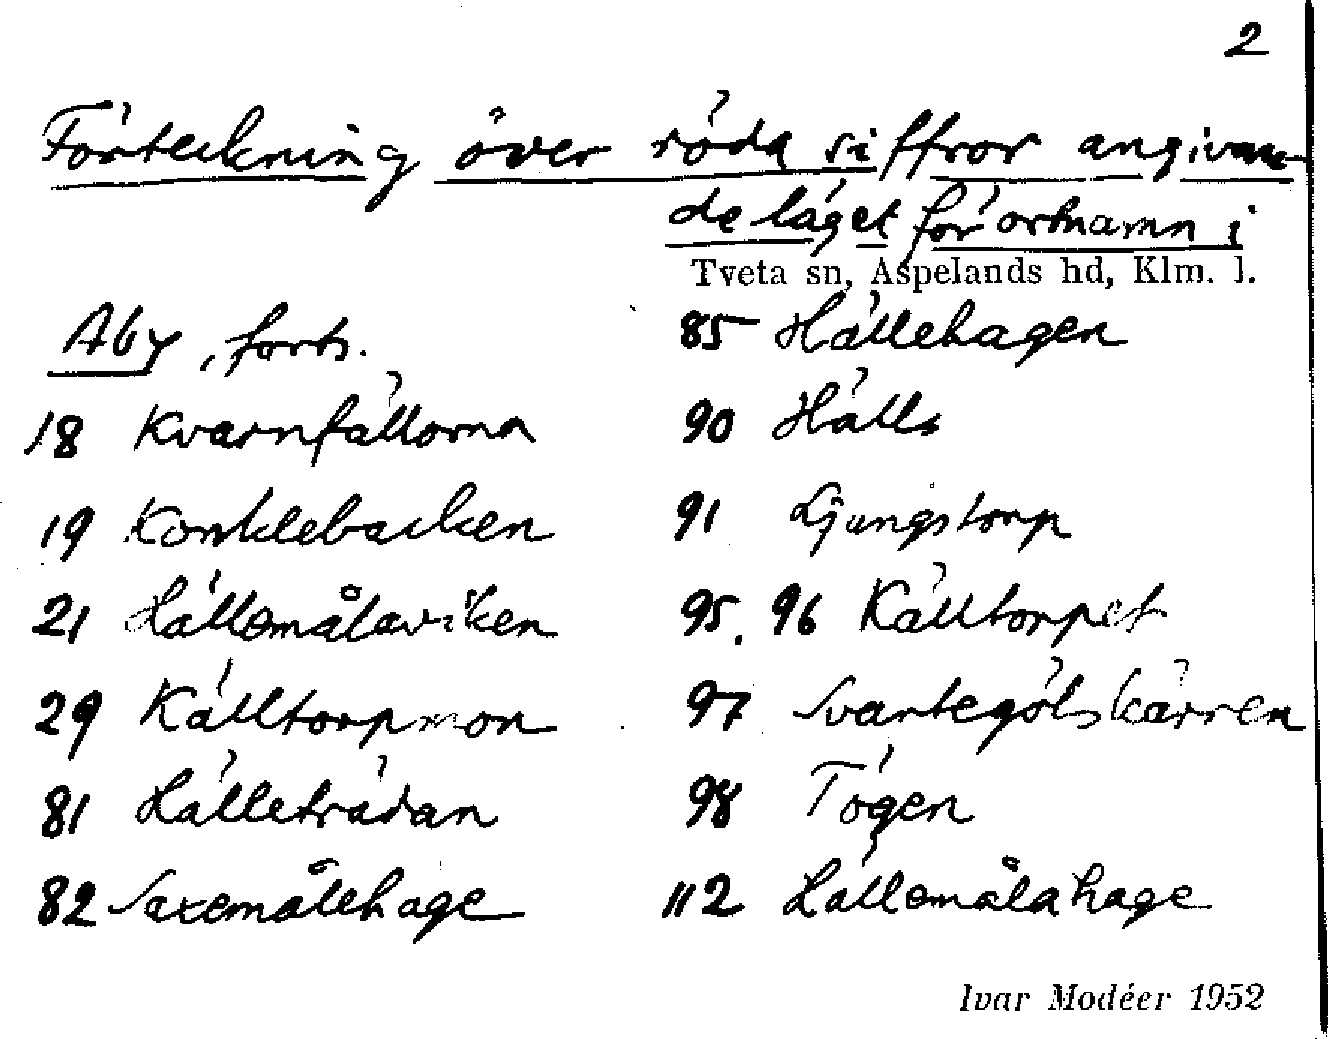 2
Förteckning över röda siffror angivan
de läget för ortnamn i
Tveta sn, Aspelands hd, Klm. l.
Åby, forts.
18 Kvarnfällorna
19 Konklebacken
21 Hällemålaviken
29 Källtorpmon
81 Hälleträdan
82 Saxemålehage
85 Hällehagen
90 Hälls
91 Ljungstorp
95. 96 Källtorpet
97 Svartegölskärren
98 Tögen
112 Hällemålahage
Ivar Modéer 1952